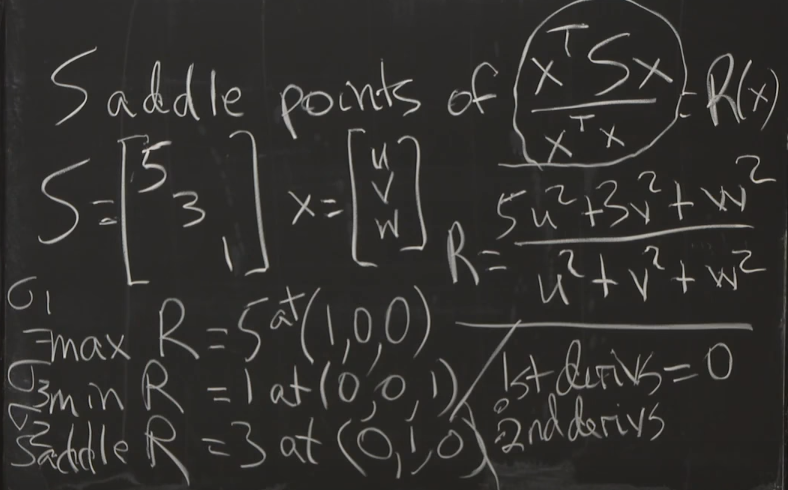 Saddle points of xᵀSx / xᵀx = R(x)
S = [5 3 1] x = [u v w]
R = 5u² + 3v² + w² / u² + v² + w²
σ₁
= max R = 5 at (1,0,0)
σ₃ min R = 1 at (0,0,1)
σ₂
Saddle R = 3 at (0,1,0)
1st derivs = 0
2nd derivs